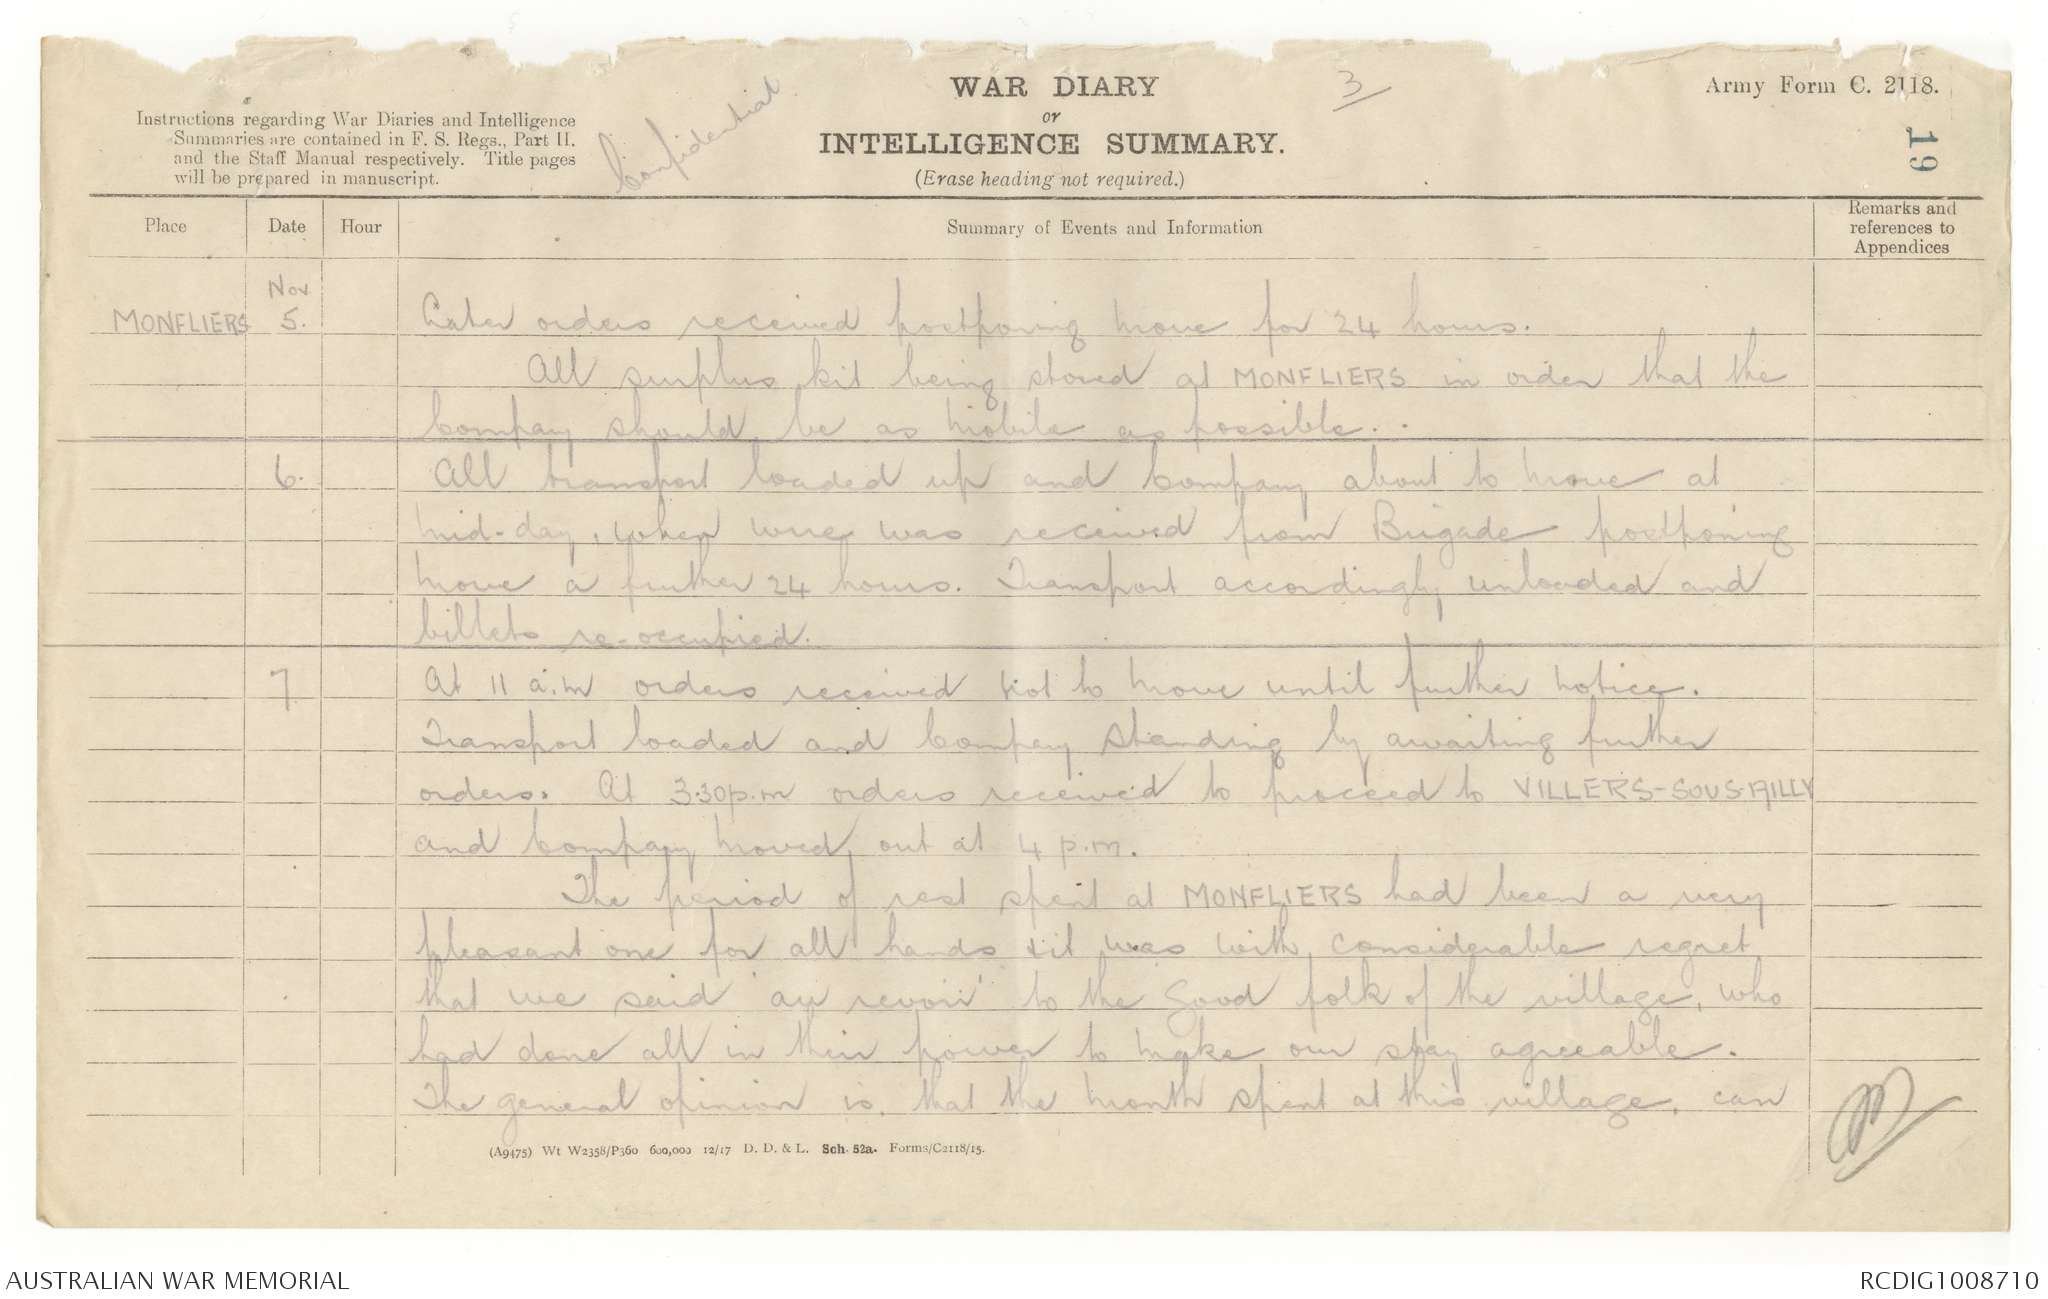 WAR DIARY
or
INTELLIGENCE SUMMARY.
(Erase heading not required.)
3
Army Form C. 2118.
19
Instructions regarding War Diaries and Intelligence
Summaries are contained in F. S. Regs., Part II.
and the Staff Manual respectively. Title pages
will be prepared in manuscript.
Confidential
Place Date Hour Summary of Events and Information Remarks and
references to
Appendices
MONFLIERS Nov
5. Later orders received postponing move for 24 hours.
All surplus kit being stored at MONFLIERS in order that the
Company should be as mobile as possible..
6. All transport loaded up and Company about to move at
mid-day, when wire was received from Brigade postponing
move a further 24 hours. Transport accordingly unloaded and
billets re-occupied.
7 At 11 a.m orders received not to move until further notice.
Transport loaded and Company standing by awaiting further
orders. At 3.30p.m orders received to proceed to VILLERS-SOUS-AILLY
and Company moved out at 4 p.m.
The period of rest spent at MONFLIERS had been a very
pleasant one for all hands & it was with considerable regret
that we said 'au revoir' to the good folk of the village, who
had done all in their power to make our stay agreeable.
The general opinion is, that the month spent at this village, can
(A9475) Wt W2358/P360 600,000 12/17 D. D. & L. Sch. 52a. Forms/C2118/15.
AUSTRALIAN WAR MEMORIAL
RCDIG1008710